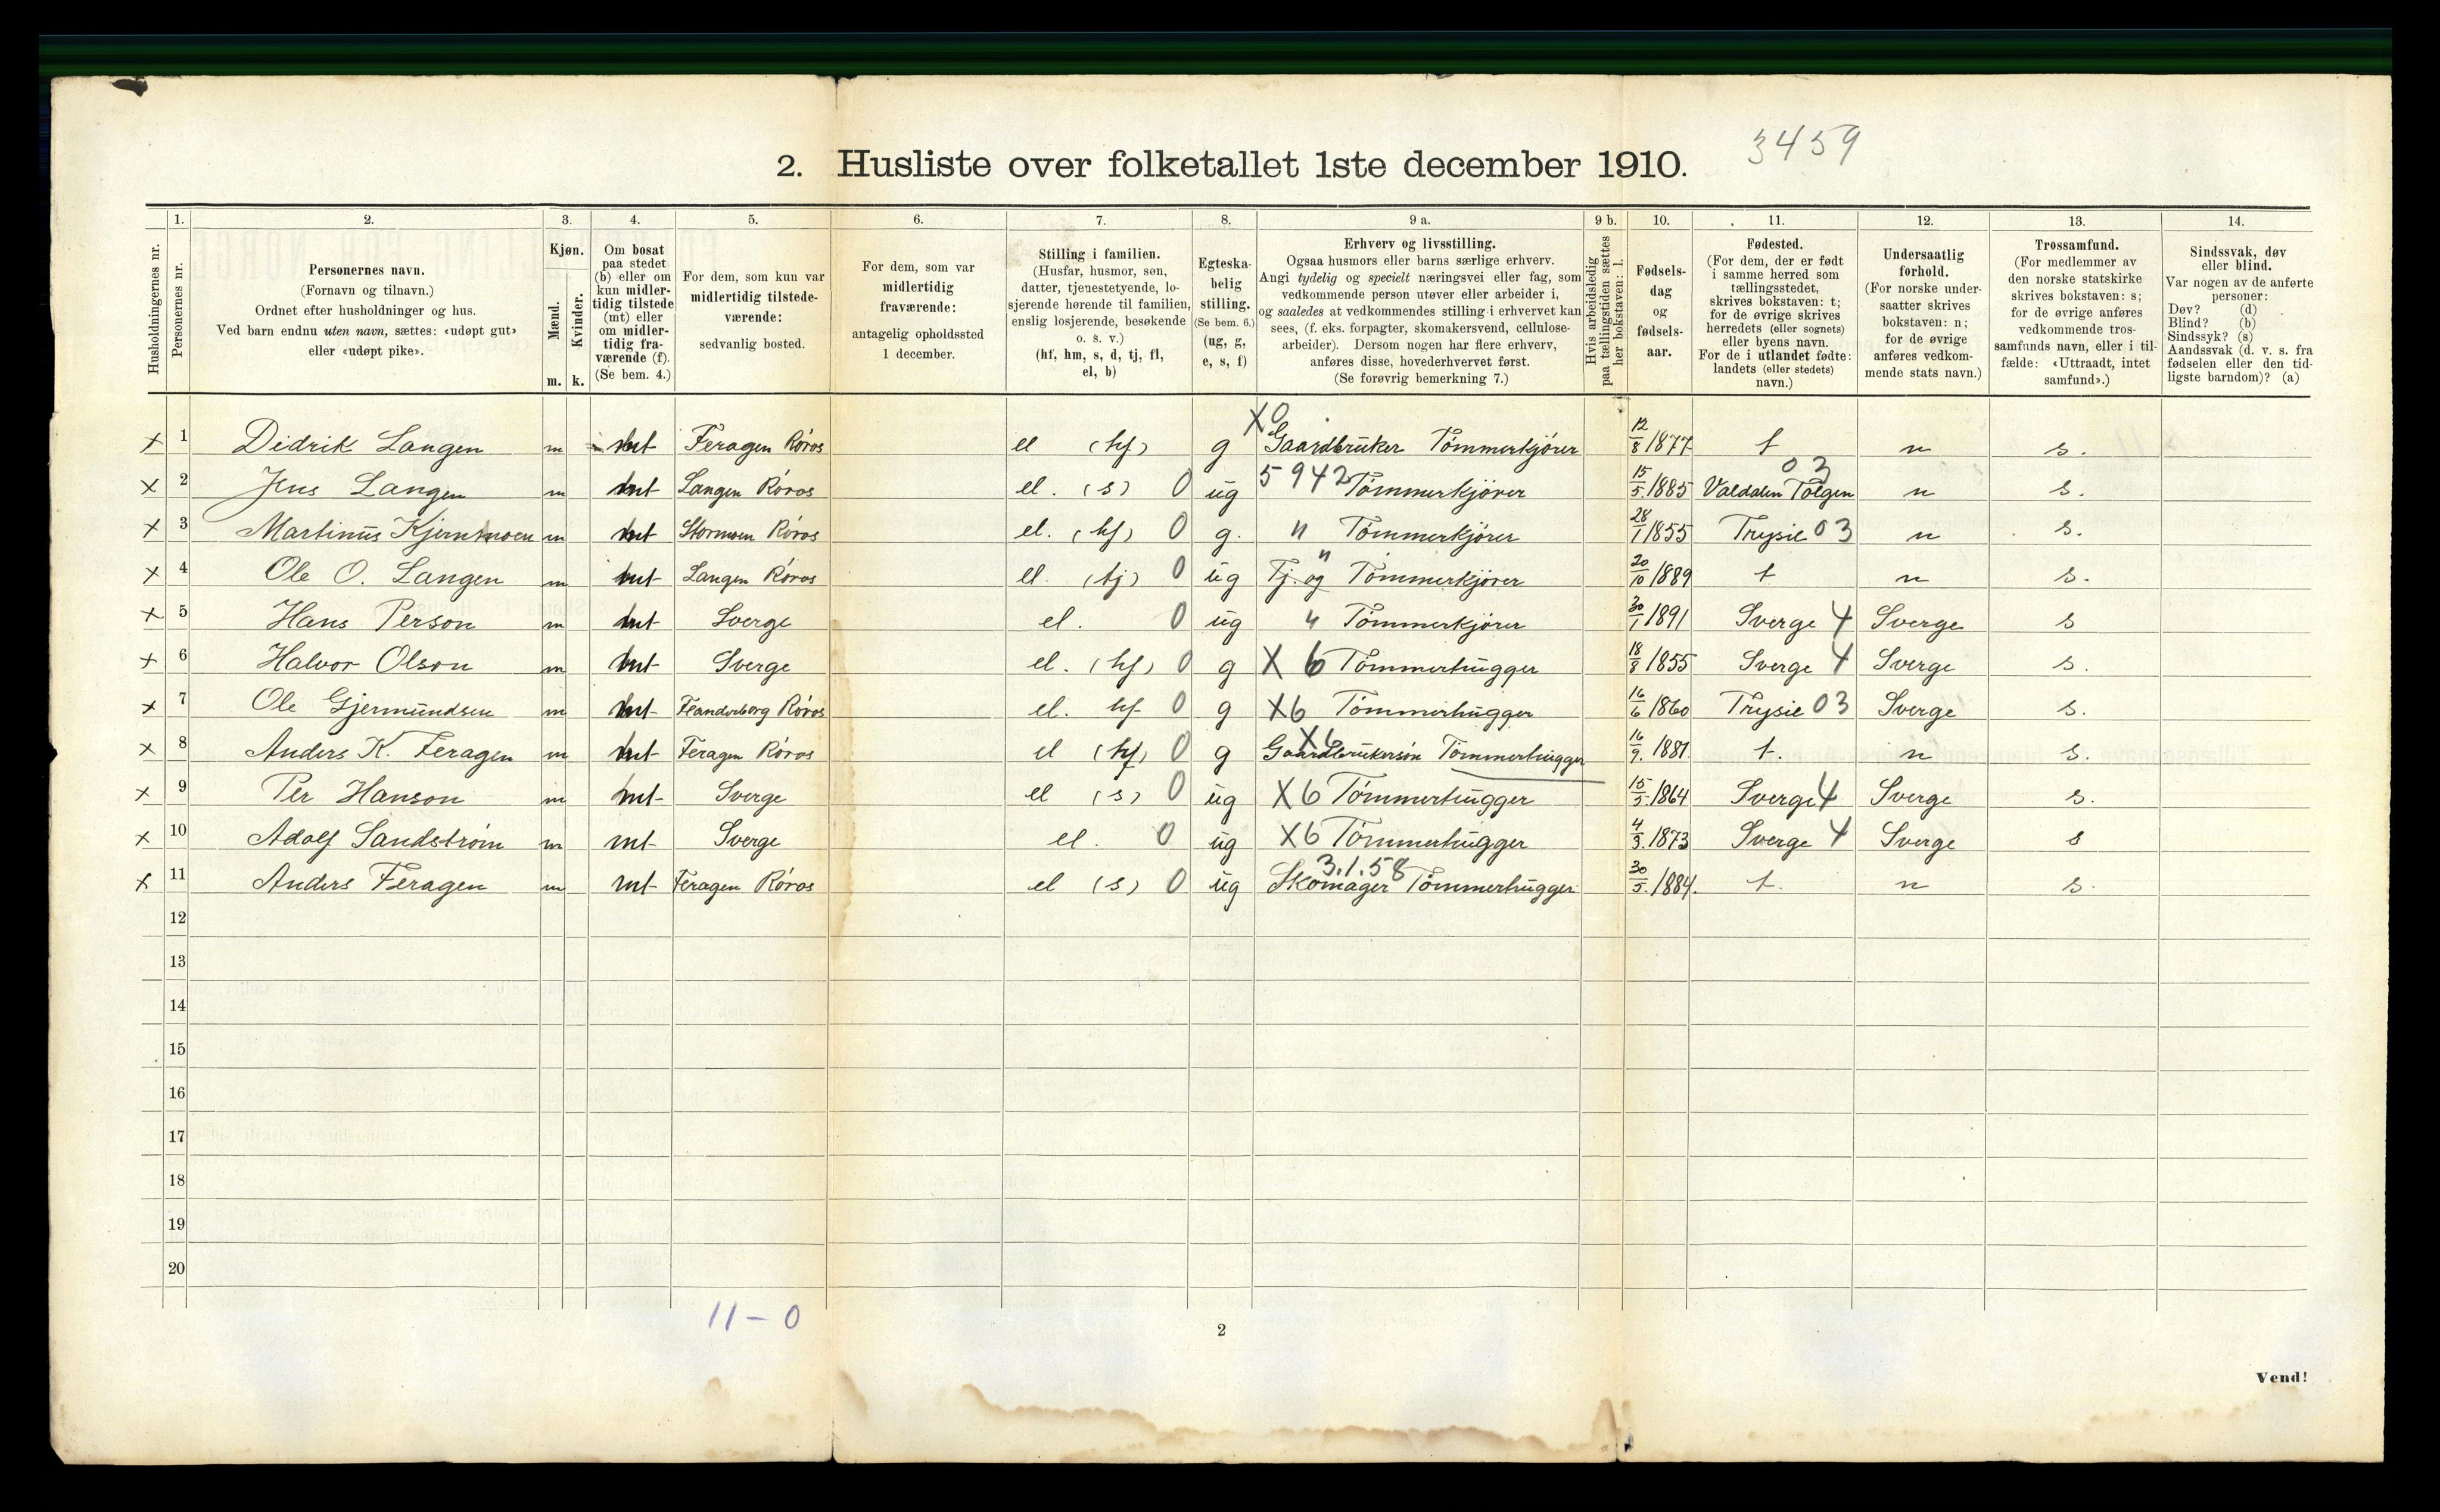 3459
2. Husliste over folketallet 1ste december 1910.
Husholdningernes nr.
1. Personernes nr.
2. Personernes navn.
(Fornavn og tilnavn.)
Ordnet efter husholdninger og hus.
Ved barn endnu uten navn, sættes: «udøpt gut»
eller «udøpt pike».
3. Kjøn.
Mænd. Kvinder.
m. k.
4. Om bosat
paa stedet
(b) eller om
kun midler-
tidig tilstede
(mt) eller
om midler-
tidig fra-
værende (f).
(Se bem. 4.)
5. For dem, som kun var
midlertidig tilstede-
værende:
sedvanlig bosted.
6. For dem, som var
midlertidig
fraværende:
antagelig opholdssted
1 december.
7. Stilling i familien.
(Husfar, husmor, søn,
datter, tjenestetyende, lo-
sjerende hørende til familien,
enslig losjerende, besøkende
o. s. v.)
(hf, hm, s, d, tj, fl,
el, b)
8. Egteska-
belig
stilling.
(Se bem. 6.)
(ug, g,
e, s, f)
9 a. Erhverv og livsstilling.
Ogsaa husmors eller barns særlige erhverv.
Angi tydelig og specielt næringsvei eller fag, som
vedkommende person utøver eller arbeider i,
og saaledes at vedkommendes stilling i erhvervet kan
sees, (f. eks. forpagter, skomakersvend, cellulose-
arbeider). Dersom nogen har flere erhverv,
anføres disse, hovederhvervet først.
(Se forøvrig bemerkning 7.)
9 b. Hvis arbeidsledig
paa tællingstiden sættes
her bokstaven: l.
10. Fødsels-
dag
og
fødsels-
aar.
11. Fødested.
(For dem, der er født
i samme herred som
tællingsstedet,
skrives bokstaven: t;
for de øvrige skrives
herredets (eller sognets)
eller byens navn.
For de i utlandet fødte:
landets (eller stedets)
navn.)
12. Undersaatlig
forhold.
(For norske under-
saatter skrives
bokstaven: n;
for de øvrige
anføres vedkom-
mende stats navn.)
13. Trossamfund.
(For medlemmer av
den norske statskirke
skrives bokstaven: s;
for de øvrige anføres
vedkommende tros-
samfunds navn, eller i til-
fælde: «Uttraadt, intet
samfund».)
14. Sindssvak, døv
eller blind.
Var nogen av de anførte
personer:
Døv? (d)
Blind? (b)
Sindssyk? (s)
Aandssvak (d. v. s. fra
fødselen eller den tid-
ligste barndom)? (a)
x 1 Didrik Langen m mt Feragen Røros el (hf) g X0 Gaardbruker Tømmerkjører 12/8 1877 t n s.
x 2 Jens Langen m mt Langen Røros el. (s) 0 ug 5942 Tømmerkjører 15/5 1885 Valdalen Tolgen 03 n s.
x 3 Martinus m mt Stormoen Røros el. (hf) 0 g. " Tømmerkjører 28/1 1855 Trysil 03 n s.
x 4 Ole O. Langen m mt Langen Røros el. (tj) 0 ug " Tj. og Tømmerkjører 20/10 1889 t n s.
x 5 Hans Person m mt Sverge el. 0 ug " Tømmerkjører 30/1 1891 Sverge 4 Sverge s
x 6 Halvor Olson m mt Sverge el. (hf) 0 g X 6 Tømmerhugger 18/8 1855 Sverge 4 Sverge s.
x 7 Ole Gjermundsen m mt Røros el. hf 0 g X6 Tømmerhugger 16/6 1860 Trysil 03 Sverge s.
x 8 Anders K. Feragen m mt Feragen Røros el (hf) 0 g X6 Gaardbrukersøn Tømmerhugger 16/9. 1881 t. n s.
x 9 Per Hanson m mt Sverge el (s) 0 ug X6 Tømmerhugger 15/5. 1864 Sverge 4 Sverge s.
x 10 Adolf Sandstrøm m mt Sverge el. 0 ug X6 Tømmerhugger 4/3. 1873 Sverge 4 Sverge s
x 11 Anders Feragen m mt Feragen Røros el (s) 0 ug 3.1.58 Skomager Tømmerhugger 30/5. 1884. t. n s.
12
13
14
15
16
17
18
19
20
11-0
2
Vend!